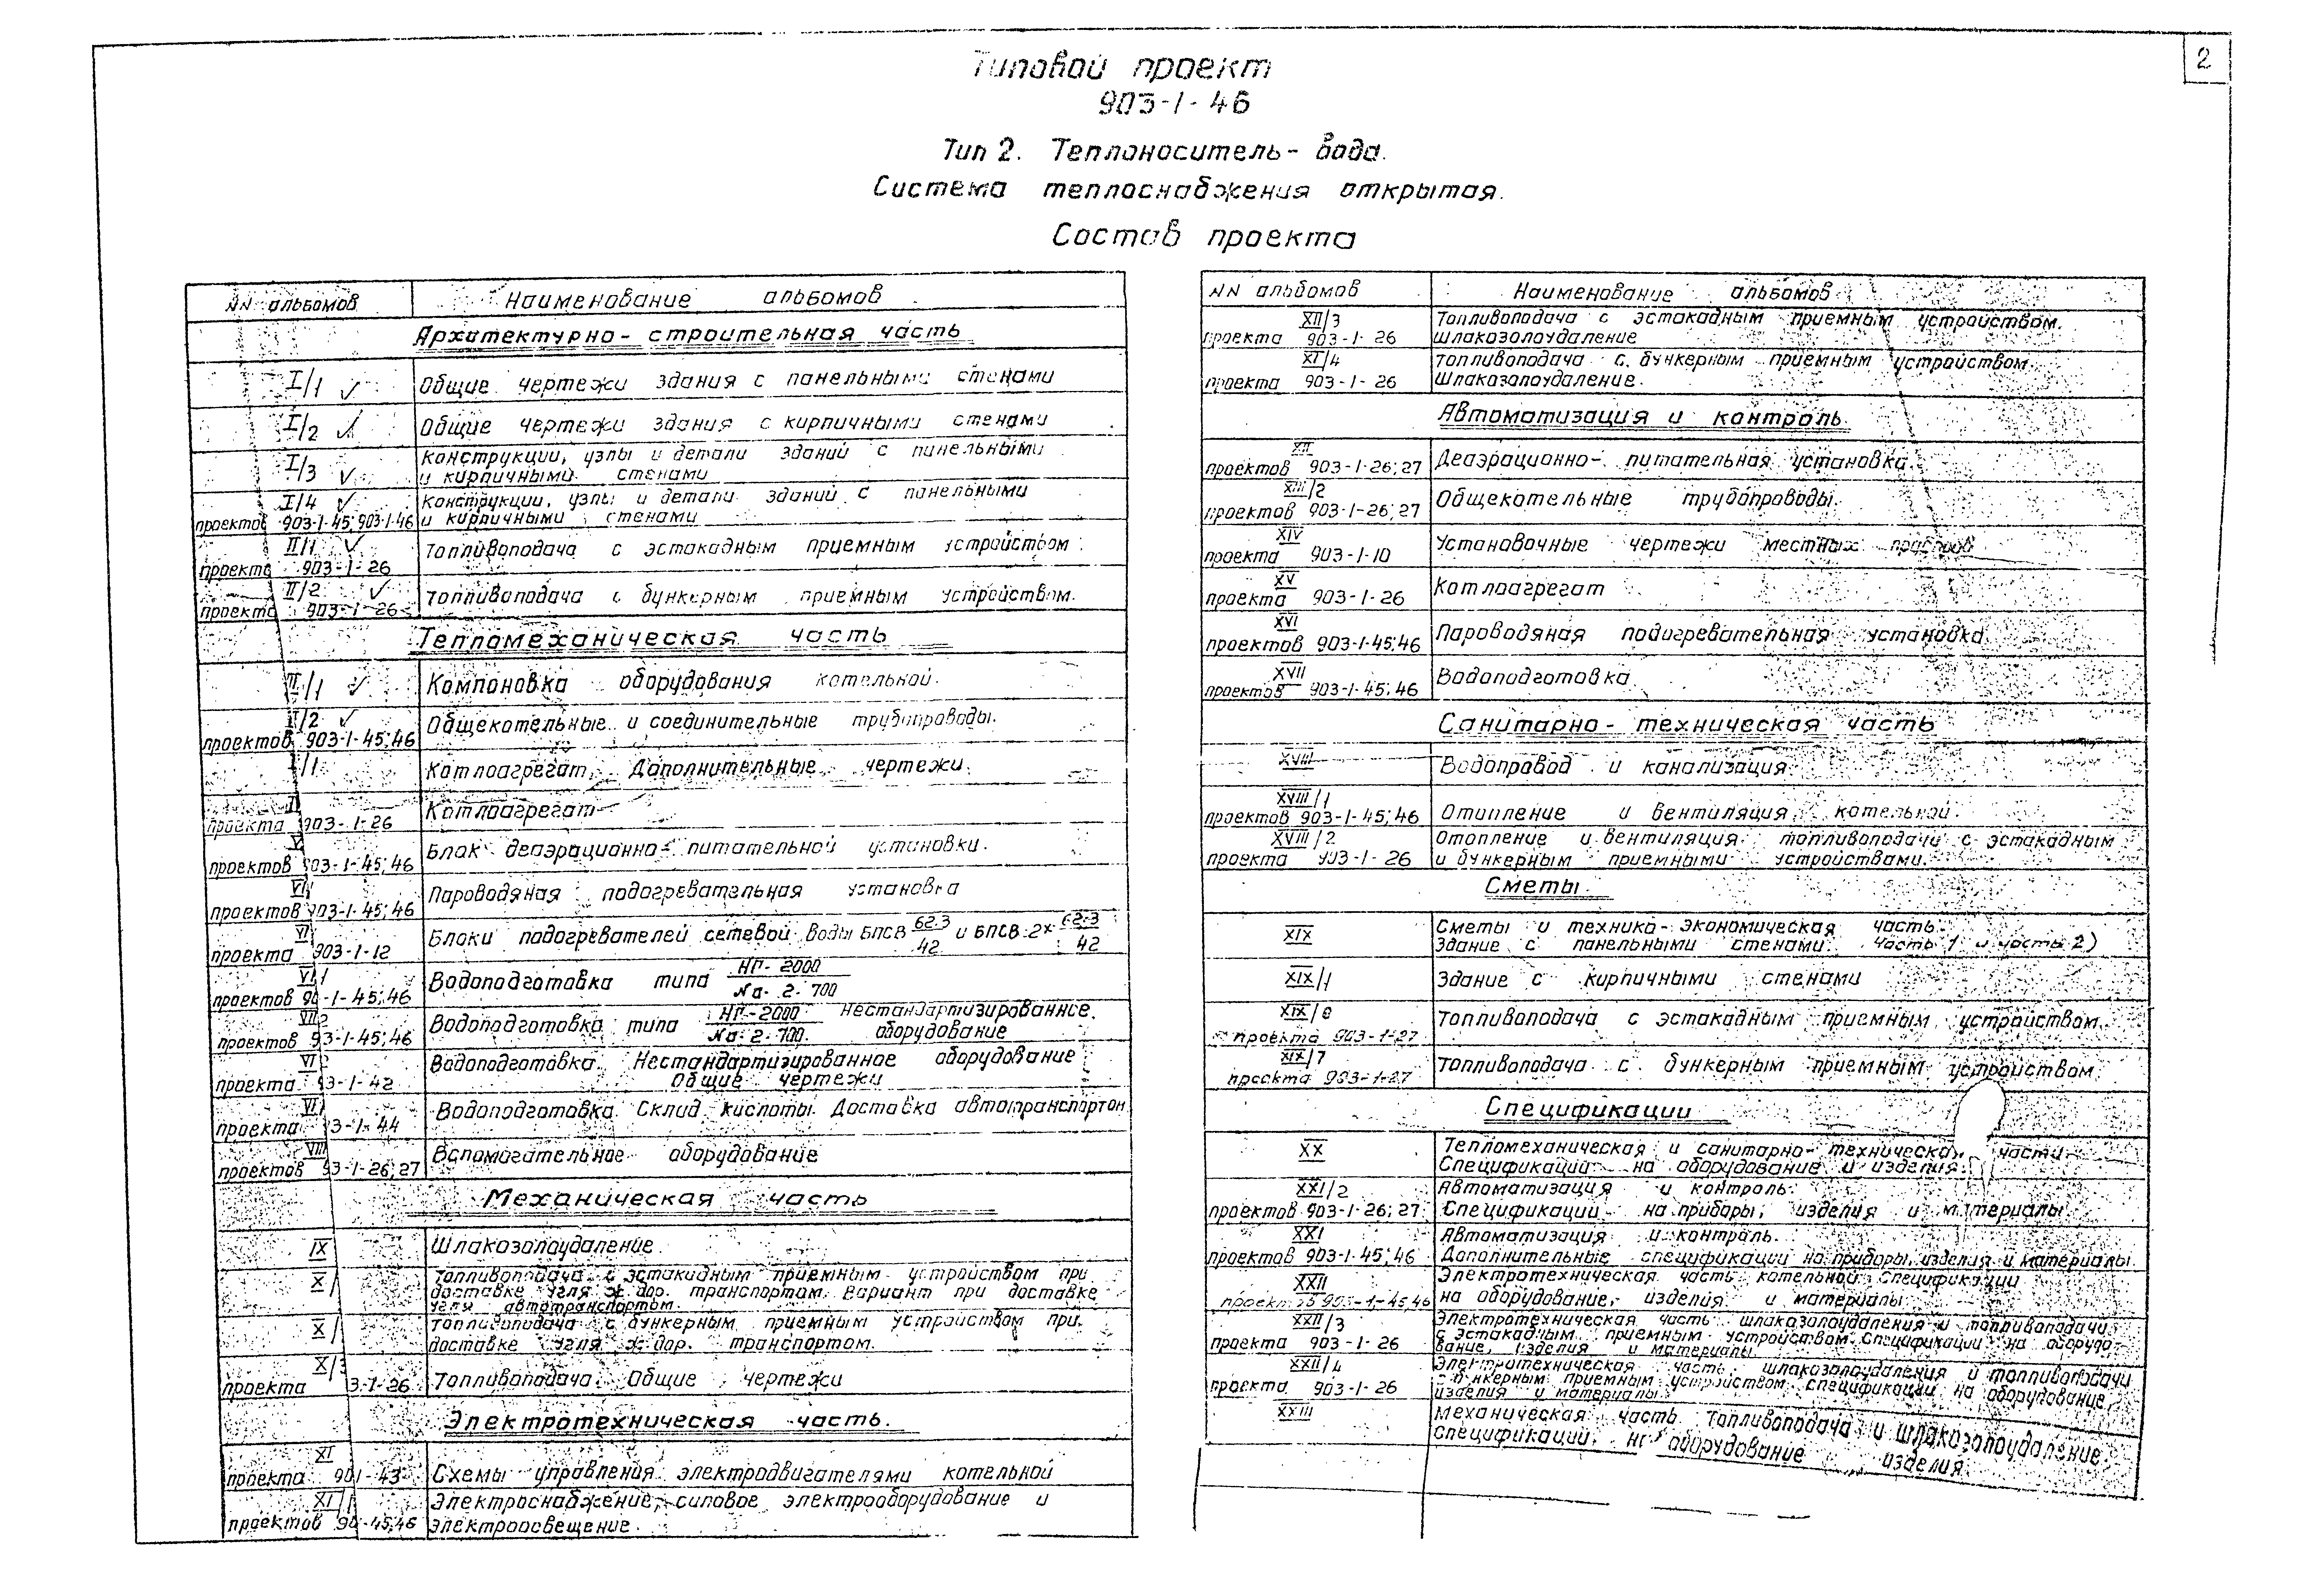 2
Типовой проект
903-1-46
Тип 2. Теплоноситель - вода.
Система теплоснабжения открытая.
Состав проекта
NN альбомов Наименование альбомов
Архитектурно-строительная часть
I/1 ✓ Общие чертежи здания с панельными стенами
I/2 ✓ Общие чертежи здания с кирпичными стенами
I/3 ✓ Конструкции, узлы и детали зданий с панельными
и кирпичными стенами
I/4 ✓ Конструкции, узлы и детали зданий с панельными
проектов 903-1-45; 903-1-46 и кирпичными стенами
II/1 ✓ Топливоподача с эстакадным приемным устройством
проекта 903-1-26
II/2 ✓ Топливоподача с бункерным приемным устройством.
проекта 903-1-26
Тепломеханическая часть
/1 ✓ Компоновка оборудования котельной.
/2 ✓ Общекотельные и соединительные трубопроводы.
проектов 903-1-45; 46
/1 Котлоагрегат. Дополнительные чертежи.
Котлоагрегат
проекта 903-1-26
V Блок деаэрационно-питательной установки.
проектов 903-1-45; 46
VI Пароводяная подогревательная установка
проектов 903-1-45; 46
Блоки подогревателей сетевой воды БПСВ 62-3/42 и БПСВ-2х 62-3/42
проекта 903-1-12
Водоподготовка типа НГ-2000/Na-2-700
проектов 90-1-45; 46
Водоподготовка типа НГ-2000/Na-2-700. Нестандартизированное
проектов 93-1-45; 46 оборудование
Водоподготовка. Нестандартизированное оборудование
проекта 93-1-42 Общие чертежи
Водоподготовка. Склад кислоты. Доставка автотранспортом
проекта 3-1-44
VIII Вспомогательное оборудование
проектов 93-1-26; 27
Механическая часть
IX Шлакозолоудаление
X/ Топливоподача с эстакадным приемным устройством при
доставке угля ж. дор. транспортом. Вариант при доставке
угля автотранспортом.
X/ Топливоподача с бункерным приемным устройством при
доставке угля ж. дор. транспортом.
X/3 Топливоподача. Общие чертежи
проекта 3-1-26
Электротехническая часть.
XI Схемы управления электродвигателями котельной
проекта 901-43
XI/1 Электроснабжение, силовое электрооборудование и
проектов 90-45; 46 электроосвещение.
NN альбомов Наименование альбомов
XII/3 Топливоподача с эстакадным приемным устройством.
проекта 903-1-26 Шлакозолоудаление
XI/4 Топливоподача с бункерным приемным устройством.
проекта 903-1-26 Шлакозолоудаление.
Автоматизация и контроль.
XII Деаэрационно-питательная установка.
проектов 903-1-26; 27
XIII/2 Общекотельные трубопроводы.
проектов 903-1-26; 27
XIV Установочные чертежи местных приборов
проекта 903-1-10
XV Котлоагрегат
проекта 903-1-26
XVI Пароводяная подогревательная установка
проектов 903-1-45; 46
XVII Водоподготовка
проектов 903-1-45; 46
Санитарно-техническая часть
XVIII Водопровод и канализация
XVIII/1 Отопление и вентиляция котельной.
проектов 903-1-45; 46
XVIII/2 Отопление и вентиляция топливоподачи с эстакадным
проекта 903-1-26 и бункерным приемными устройствами.
Сметы.
XIX Сметы и технико-экономическая часть.
Здание с панельными стенами. часть 1 и часть 2)
XIX/1 Здание с кирпичными стенами
XIX/ Топливоподача с эстакадным приемным устройством.
проекта 903-1-27
XIX/7 Топливоподача с бункерным приемным устройством
проекта 903-1-27
Спецификации
XX Тепломеханическая и санитарно-техническая части.
Спецификации на оборудование и изделия.
XXI/2 Автоматизация и контроль.
проектов 903-1-26; 27 Спецификации на приборы, изделия и материалы
XXI Автоматизация и контроль.
проектов 903-1-45; 46 Дополнительные спецификации на приборы, изделия и материалы.
XXII Электротехническая часть котельной. Спецификации
проектов 903-1-45; 46 на оборудование, изделия и материалы
XXII/3 Электротехническая часть шлакозолоудаления и топливоподачи
с эстакадным приемным устройством. Спецификации на оборудо-
проекта 903-1-26 вание, изделия и материалы.
XXII/4 Электротехническая часть шлакозолоудаления и топливоподачи
проекта 903-1-26 с бункерным приемным устройством. Спецификации на оборудование,
изделия и материалы
XXIII Механическая часть. Топливоподача и шлакозолоудаление.
Спецификации на оборудование и изделия.